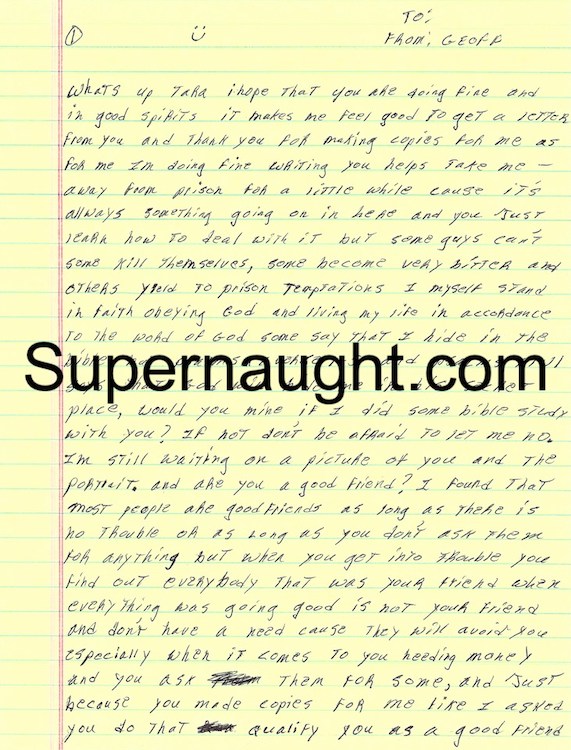 TO:
① :) FROM: GEOFF
whats up Tara i hope that you are doing fine and
in good spirits it makes me feel good to get a letter
from you and thank you for making copies for me as
for me Im doing fine writing you helps take me –
away from prison for a little while cause it's
allways something going on in here and you just
learn how to deal with it but some guys can't
some kill themselves, some become very bitter and
others yield to prison temptations I myself stand
in faith obeying God and living my life in accordance
to the word of God some say that I hide in the
Supernaught.com
place, would you mine if I did some bible study
with you? If not don't be afraid to let me no.
Im still waiting on a picture of you and the
portrait. and are you a good friend? I found that
most people are good friends as long as there is
no trouble or as long as you don't ask them
for anything but when you get into trouble you
find out everybody that was your friend when
everything was going good is not your friend
and don't have a need cause they will avoid you
especially when it comes to you needing money
and you ask them for some, and just
because you made copies for me like I asked
you do that qualify you as a good friend